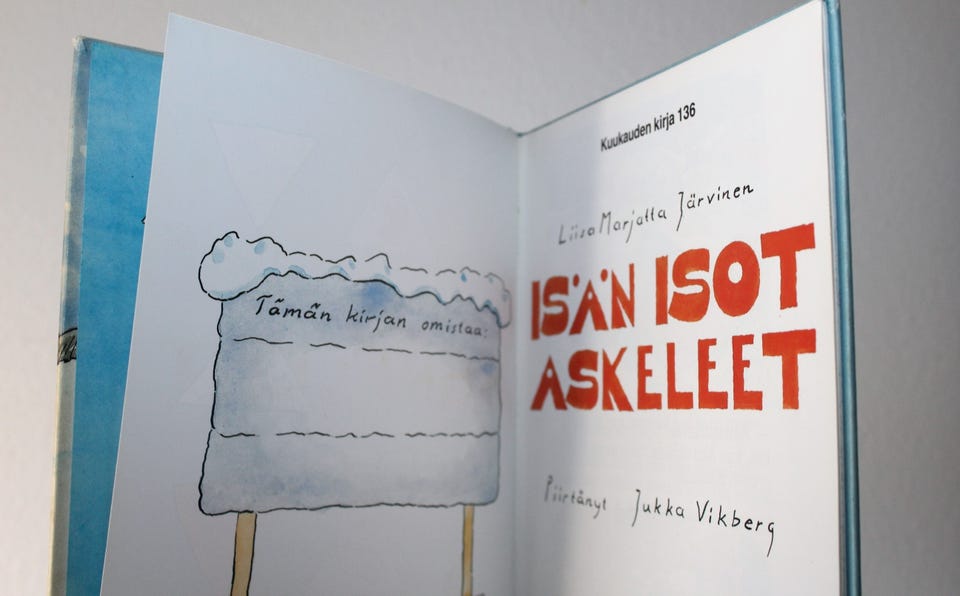 Tämän kirjan omistaa:
Kuukauden kirja 136
Liisa Marjatta Järvinen
ISÄN ISOT
ASKELEET
Piirtänyt Jukka Vikberg